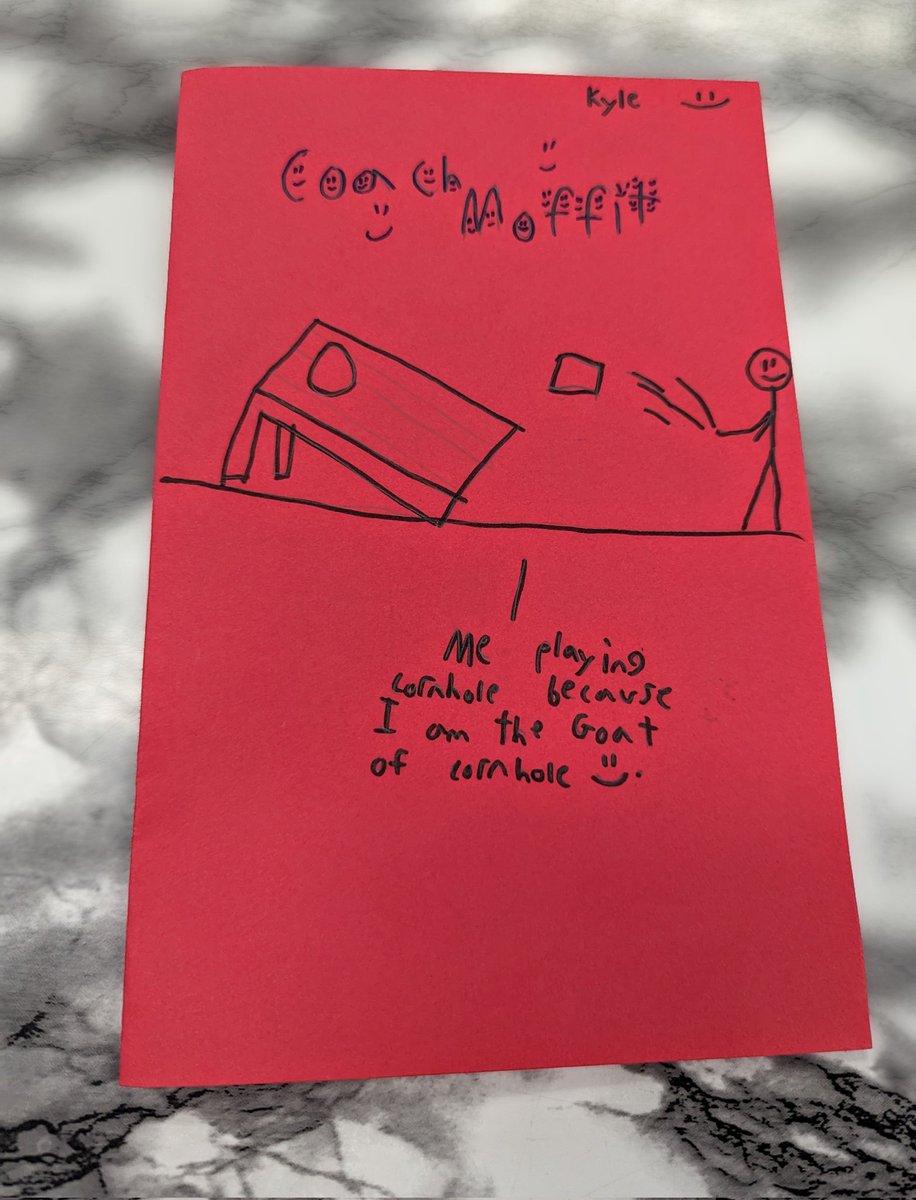 Kyle
Coach
Moffit
Me playing
cornhole because
I am the Goat
of cornhole .